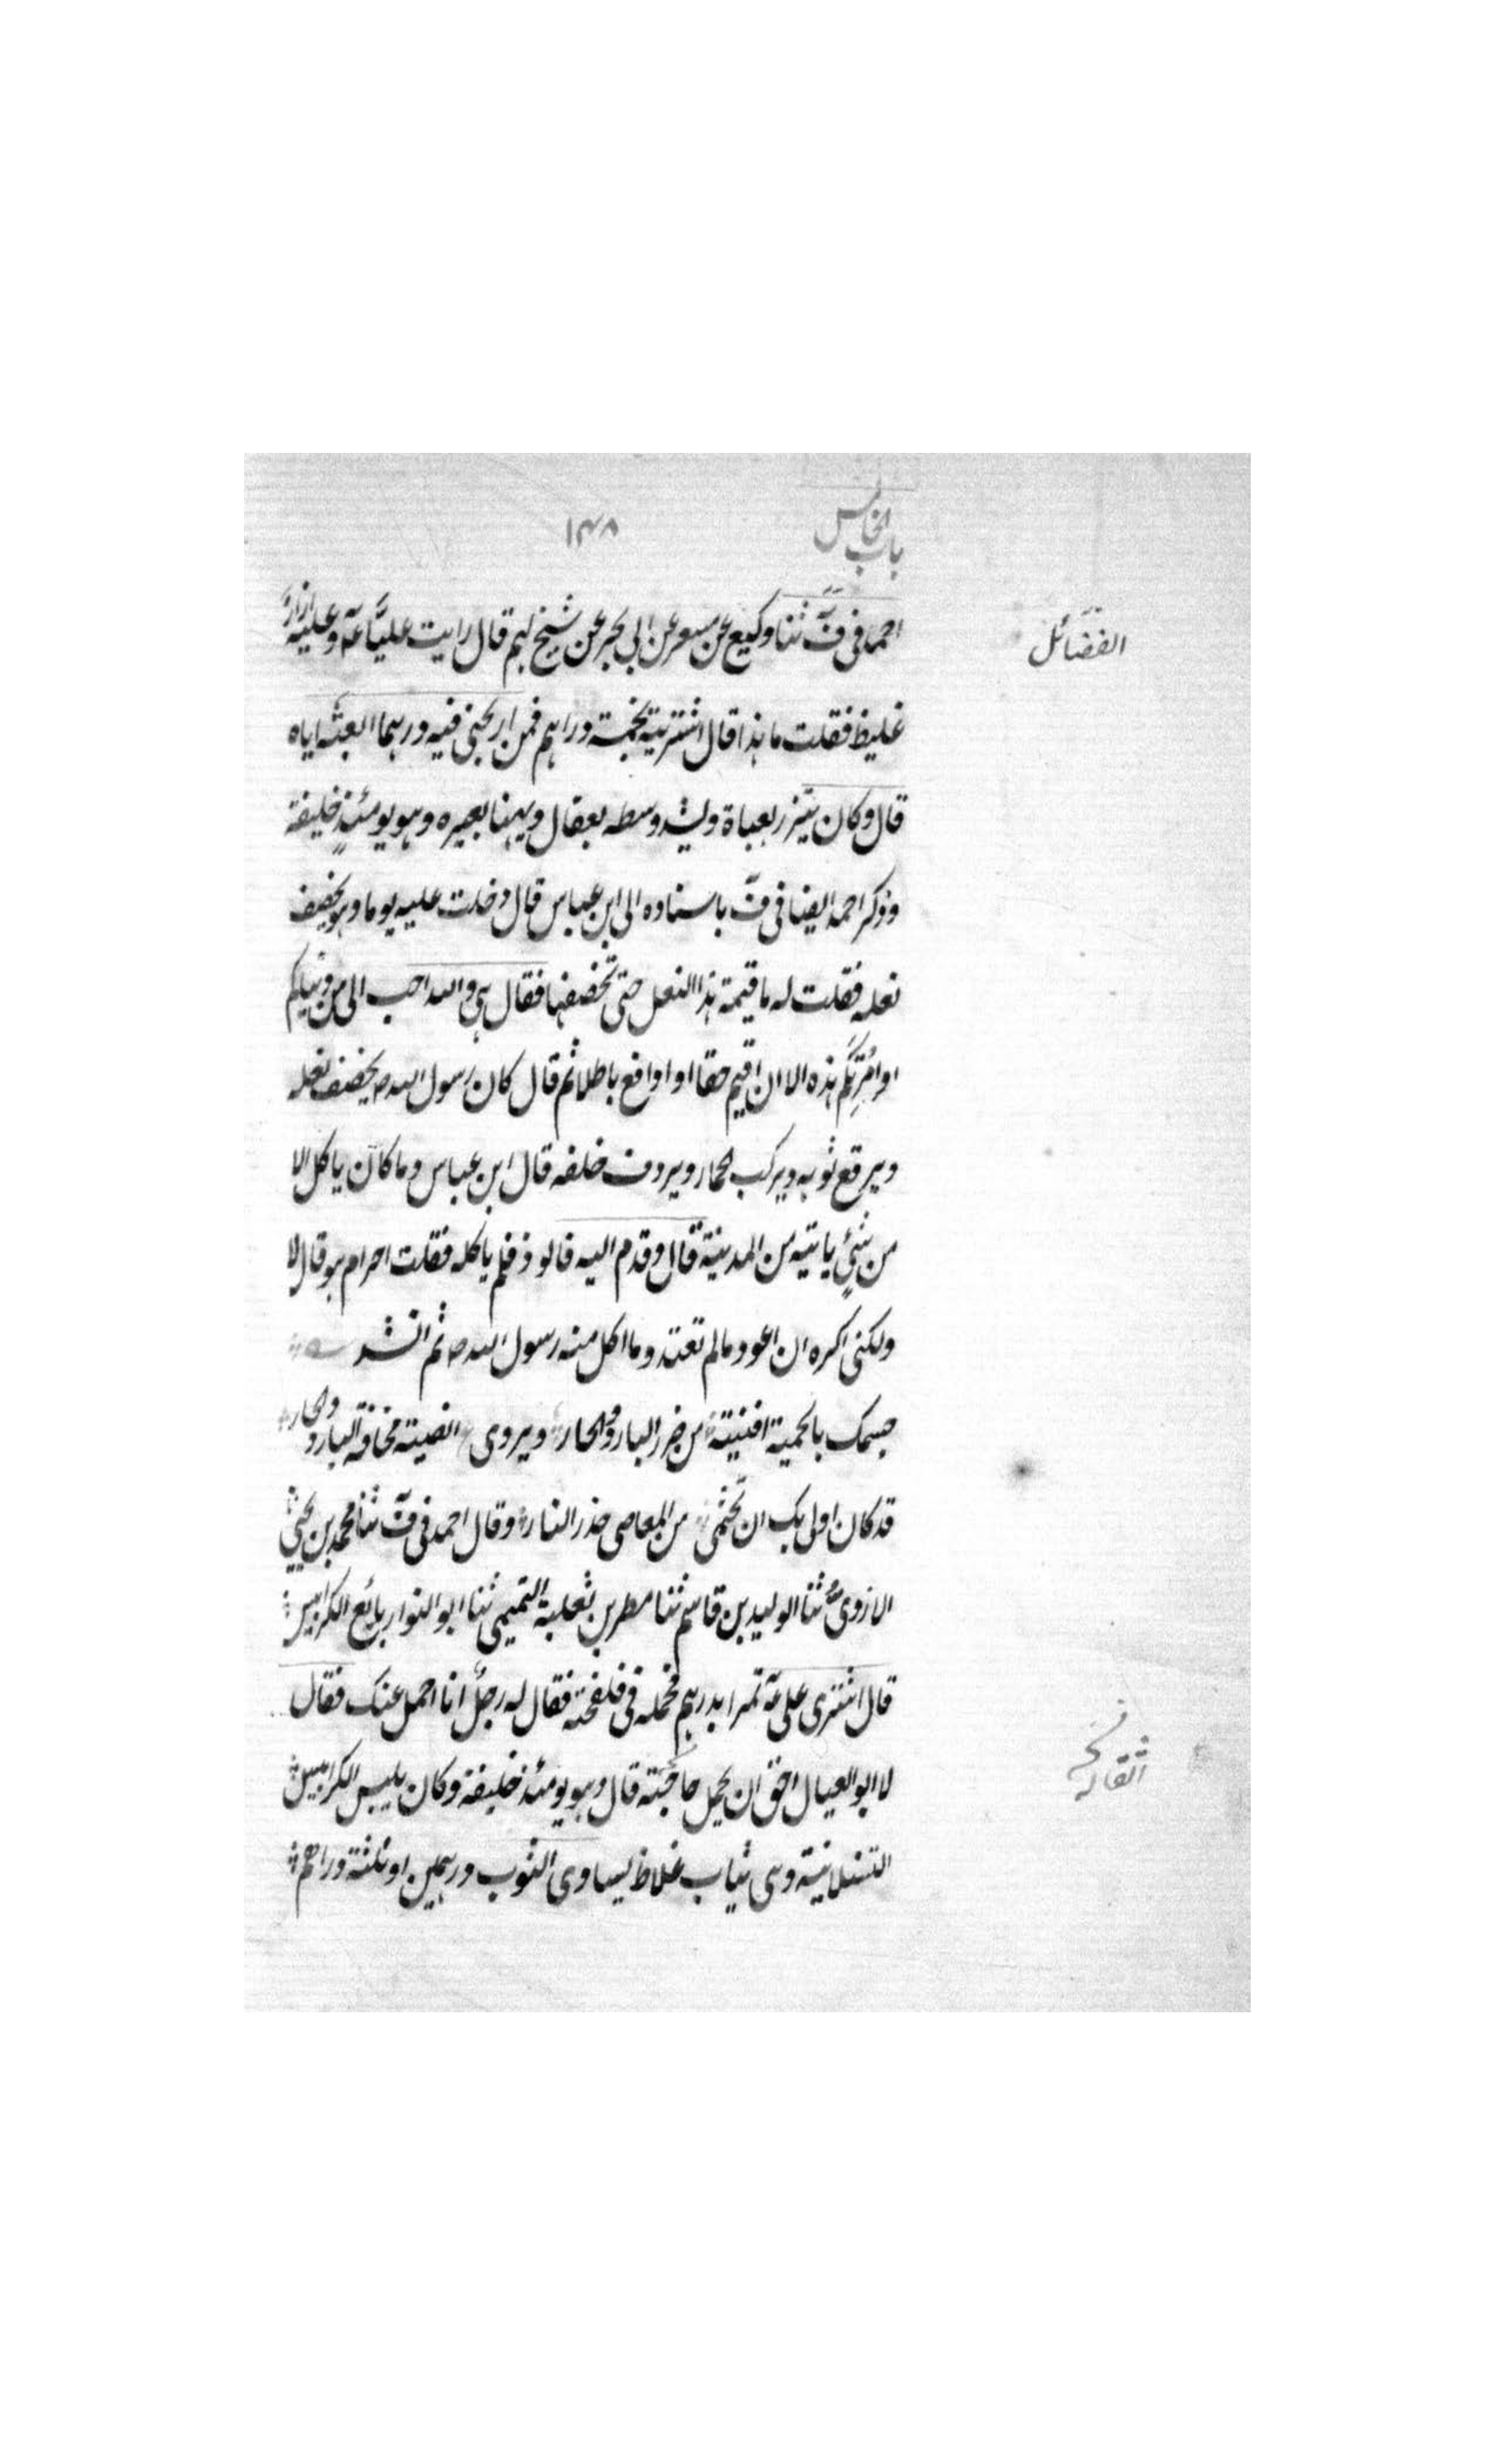 باب الخامس
١٣٨
احمد فی فّ ثنا وکیع عن مسعر عن ابی بحر عن شیخ لهم قال رایت علیّا عّه وعلیه ازار
الفضائل
غلیظ فقلت ما هذا قال اشتریته بخمسة دراهم فمن اربحنی فیه درهما ابعثه ایاه
قال وکان یتزر بعباة ویشد وسطه بعقال ویهنا بعیره وهو یومئذٍ خلیفة
وذکر احمد ایضا فی فّ باسناده الی ابن عباس قال دخلت علیه یوما وهو یخصف
نعله فقلت له ما قیمة هذا النعل حتی تخصفها فقال هی والله احب الی من دنیاکم
او امرتکم هذه الا ان اقیم حقا او ادافع باطلا ثم قال کان رسول الله ص یخصف نعله
ویرقع ثوبه ویرکب الحمار ویردف خلفه قال ابن عباس وما کان یاکل الا
من شئٍ یاتیه من المدینة قال وقدم الیه فالوذ فلم یاکله فقلت احرام هو قال لا
ولکنی اکره ان اعود مالم تعتد وما اکل منه رسول الله ص ثم انشد
جسمک بالحمیة افنیته من ضرر البارد والحار ویروی افنیته مخافة البارد والحار
قد کان اولی بک ان تحتمی من المعاصی حذر النار وقال احمد فی فّ ثنا محمد بن یحیی
الازدی ثنا الولید بن قاسم ثنا مطر بن ثعلبة التمیمی ثنا ابو النوار بائع الکرابیس
قال اشتری علی عّه تمرا بدرهم فحمله فی ملحفته فقال له رجل انا احمل عنک فقال
لا ابو العیال احق ان یحمل حاجته قال وهو یومئذ خلیفة وکان یلبس الکرابیس
السنبلانیة وهی ثیاب غلاظ یساوی الثوب درهمین او ثلثة دراهم